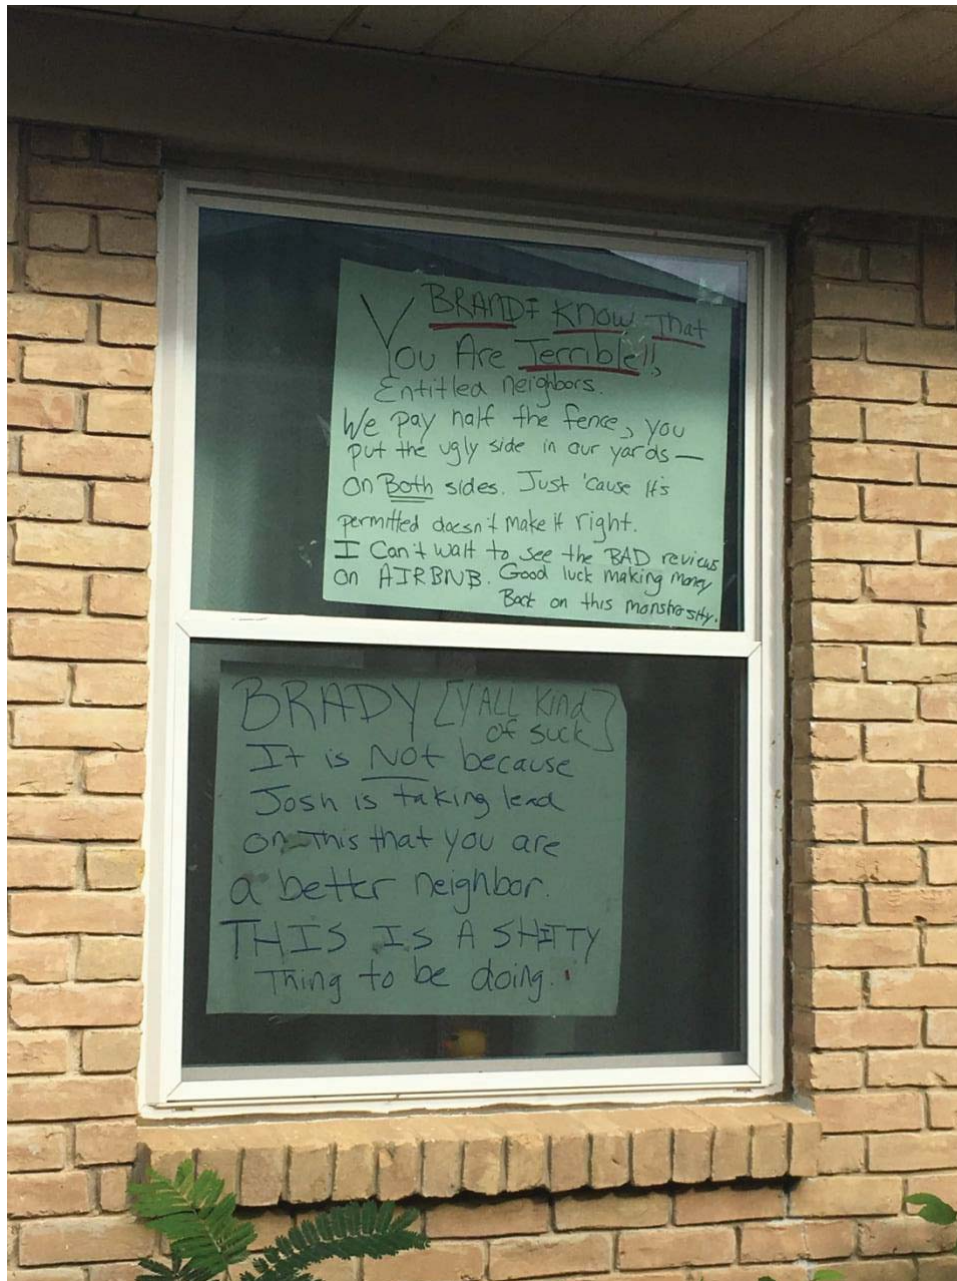 BRANDI Know That
You Are Terrible!!,
Entitled neighbors.
We pay half the fence, you
put the ugly side in our yards —
on Both sides. Just 'cause it's
permitted doesn't make it right.
I Can't wait to see the BAD reviews
on AIRBNB. Good luck making money
Back on this monstrosity.
BRADY [Y'ALL kind
of suck]
It is Not because
Josh is taking lead
on this that you are
a better neighbor.
THIS IS A SHITTY
Thing to be doing.